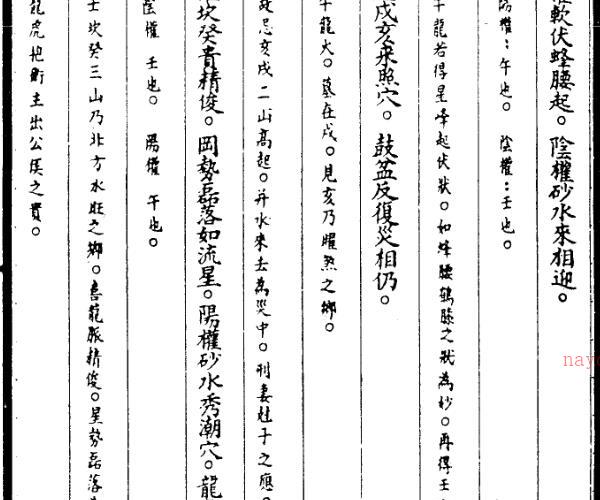 軟伏蜂腰起。陰權砂水來相迎。
陽權：午也。 陰權：壬也。
午龍若得星峰起伏狀。如蜂腰鶴膝之狀為妙。再得壬
戌亥來照穴。鼓盆反復災相仍。
午龍火。墓在戌。見亥乃曜煞之鄉。
故忌亥戌二山高起。并水來去為災中。刑妻尅子之應。
坎癸貴精俊。岡勢磊落如流星。陽權砂水秀潮穴。龍
陰權 壬也。 陽權 午也。
壬坎癸三山乃北方水旺之鄉。喜龍脈精俊。星勢磊落
龍虎抱衛主出公侯之貴。
nayo